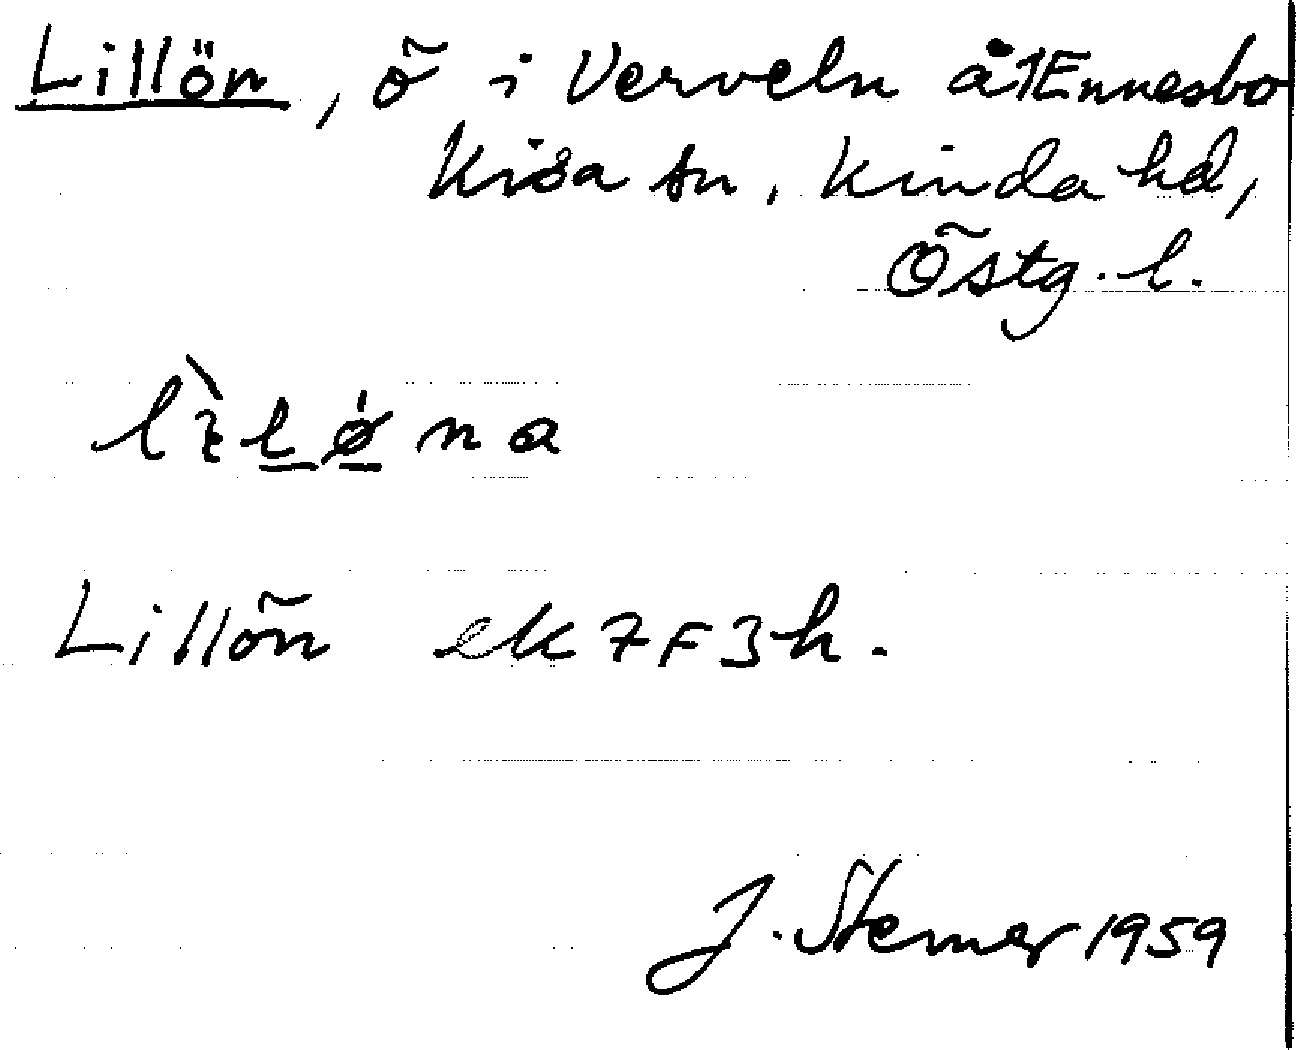 Lillön, ö i Verveln å 1 Ennesbo
Kisa sn, Kinda hd,
Östg. l.
Lillön ek 7 F 3 h.
J. Stemer 1959